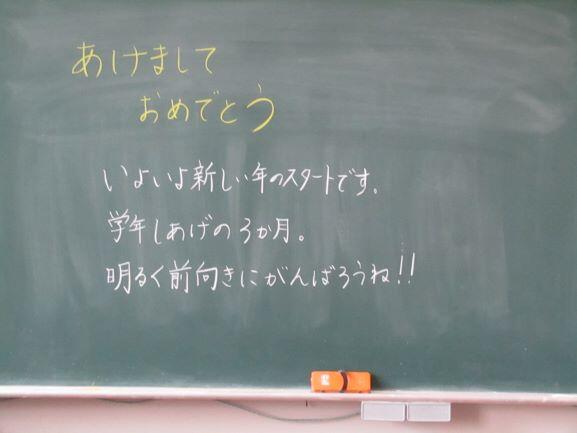 あけまして
おめでとう
いよいよ新しい年のスタートです。
学年しあげの3か月。
明るく前向きにがんばろうね!!